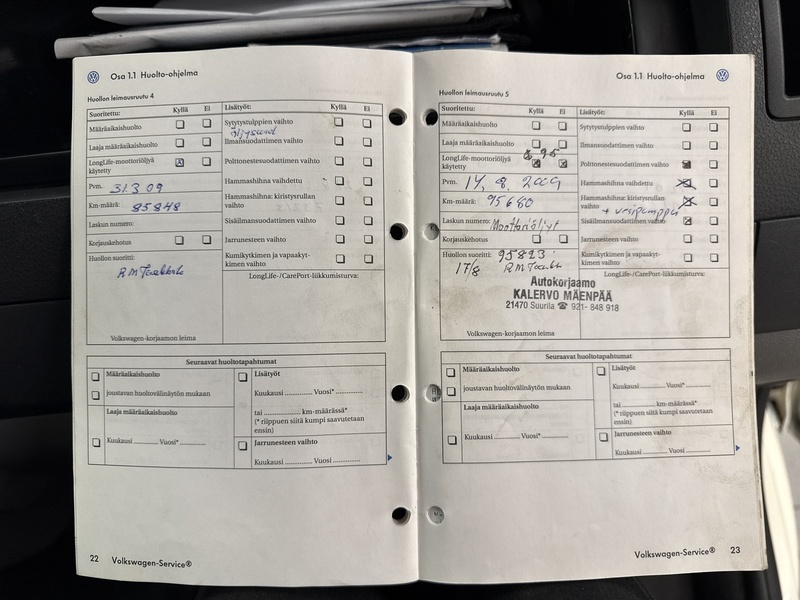 Osa 1.1 Huolto-ohjelma
Huollon leimausruutu 4
Suoritettu: Kyllä Ei
Määräaikaishuolto
Laaja määräaikaishuolto
LongLife-moottoriöljyä
käytetty
Pvm. 31.3 09
Km-määrä: 85848
Laskun numero:
Korjauskehotus
Huollon suoritti:
Volkswagen-korjaamon leima
Lisätyöt: Kyllä Ei
Sytytystulppien vaihto
Ilmansuodattimen vaihto
Polttonestesuodattimen vaihto
Hammashihna vaihdettu
Hammashihna: kiristysrullan
vaihto
Sisäilmansuodattimen vaihto
Jarrunesteen vaihto
Kumikytkimen ja vapaakyt-
kimen vaihto
LongLife-/CarePort-liikkumisturva:
Seuraavat huoltotapahtumat
Määräaikaishuolto
joustavan huoltovälinäytön mukaan
Laaja määräaikaishuolto
Kuukausi ............ Vuosi* ............
Lisätyöt
Kuukausi ............ Vuosi* ............
tai ............ km-määrässä*
(* riippuen siitä kumpi saavutetaan
ensin)
Jarrunesteen vaihto
Kuukausi ............ Vuosi ............
22 Volkswagen-Service®
Osa 1.1 Huolto-ohjelma
Huollon leimausruutu 5
Suoritettu: Kyllä Ei
Määräaikaishuolto
Laaja määräaikaishuolto
LongLife-moottoriöljyä
käytetty
Pvm. 14. 8. 2009
Km-määrä: 95680
Laskun numero: Moottoriöljyt
Korjauskehotus
Huollon suoritti: 95823
17/8
Autokorjaamo
KALERVO MÄENPÄÄ
21470 Suurila ☎ 921- 848 918
Volkswagen-korjaamon leima
Lisätyöt: Kyllä Ei
Sytytystulppien vaihto
Ilmansuodattimen vaihto
Polttonestesuodattimen vaihto
Hammashihna vaihdettu
Hammashihna: kiristysrullan
vaihto
+ vesipumppu
Sisäilmansuodattimen vaihto
Jarrunesteen vaihto
Kumikytkimen ja vapaakyt-
kimen vaihto
LongLife-/CarePort-liikkumisturva:
Seuraavat huoltotapahtumat
Määräaikaishuolto
joustavan huoltovälinäytön mukaan
Laaja määräaikaishuolto
Kuukausi ............ Vuosi* ............
Lisätyöt
Kuukausi ............ Vuosi* ............
tai ............ km-määrässä*
(* riippuen siitä kumpi saavutetaan
ensin)
Jarrunesteen vaihto
Kuukausi ............ Vuosi ............
Volkswagen-Service® 23